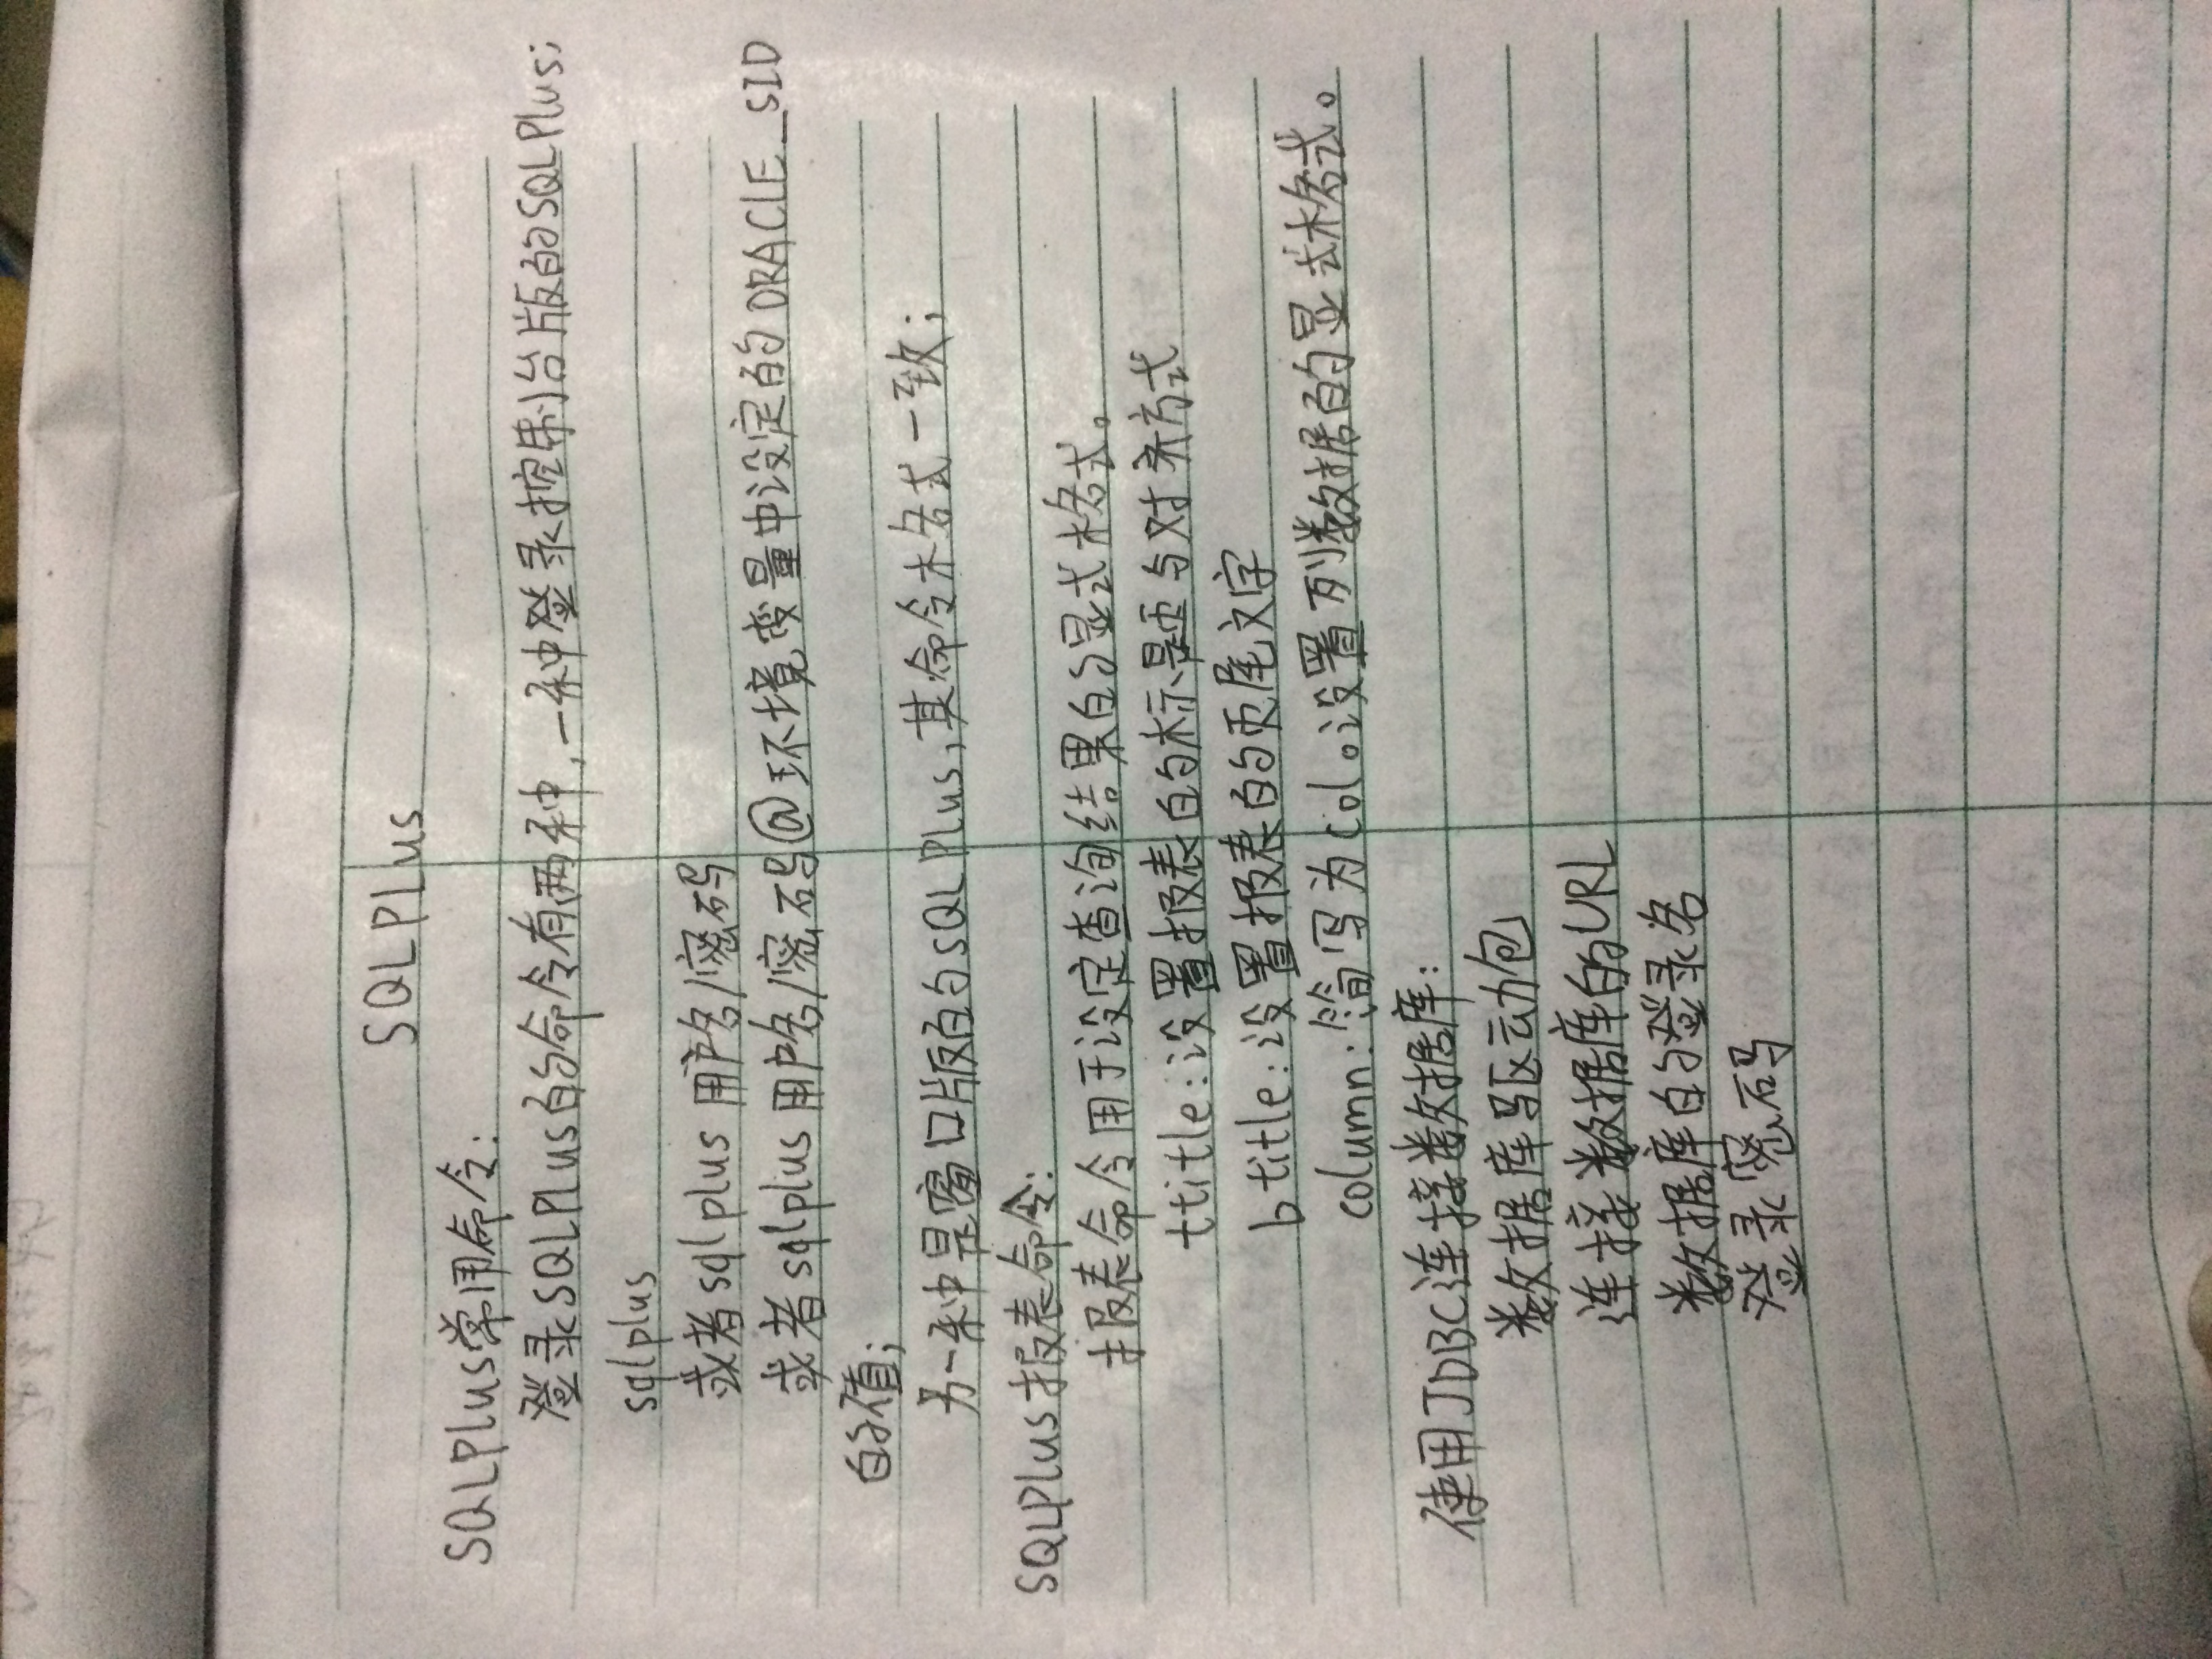 SQLPlus
SQLPlus常用命令:
登录SQLPlus的命令有两种,一种登录控制台版的SQLPlus;
sqlplus
或者sqlplus 用户名/密码
或者sqlplus 用户名/密码@环境变量中设定的ORACLE_SID
的值;
另一种是窗口版的SQLPlus,其命令格式一致;
SQLPlus报表命令:
报表命令用于设定查询结果的显式格式。
ttitle:设置报表的标题与对齐方式
btitle:设置报表的页尾文字
column:简写为col。设置列数据的显式格式。
使用JDBC连接数据库:
数据库驱动包
连接数据库的URL
数据库的登录名
登录密码